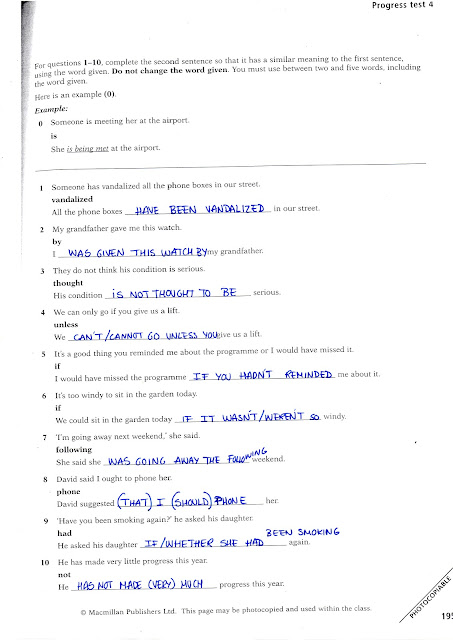 Progress test 4
For questions 1–10, complete the second sentence so that it has a similar meaning to the first sentence,
using the word given. Do not change the word given. You must use between two and five words, including
the word given.
Here is an example (0).
Example:
0 Someone is meeting her at the airport.
is
She is being met at the airport.
1 Someone has vandalized all the phone boxes in our street.
vandalized
All the phone boxes HAVE BEEN VANDALIZED in our street.
2 My grandfather gave me this watch.
by
I WAS GIVEN THIS WATCH BY my grandfather.
3 They do not think his condition is serious.
thought
His condition IS NOT THOUGHT TO BE serious.
4 We can only go if you give us a lift.
unless
We CAN'T/CANNOT GO UNLESS YOU give us a lift.
5 It's a good thing you reminded me about the programme or I would have missed it.
if
I would have missed the programme IF YOU HADN'T REMINDED me about it.
6 It's too windy to sit in the garden today.
if
We could sit in the garden today IF IT WASN'T/WEREN'T SO windy.
7 'I'm going away next weekend,' she said.
following
She said she WAS GOING AWAY THE FOLLOWING weekend.
8 David said I ought to phone her.
phone
David suggested (THAT) I (SHOULD) PHONE her.
9 'Have you been smoking again?' he asked his daughter.
had
He asked his daughter IF/WHETHER SHE HAD BEEN SMOKING again.
10 He has made very little progress this year.
not
He HAS NOT MADE (VERY) MUCH progress this year.
© Macmillan Publishers Ltd. This page may be photocopied and used within the class.
PHOTOCOPIABLE
195